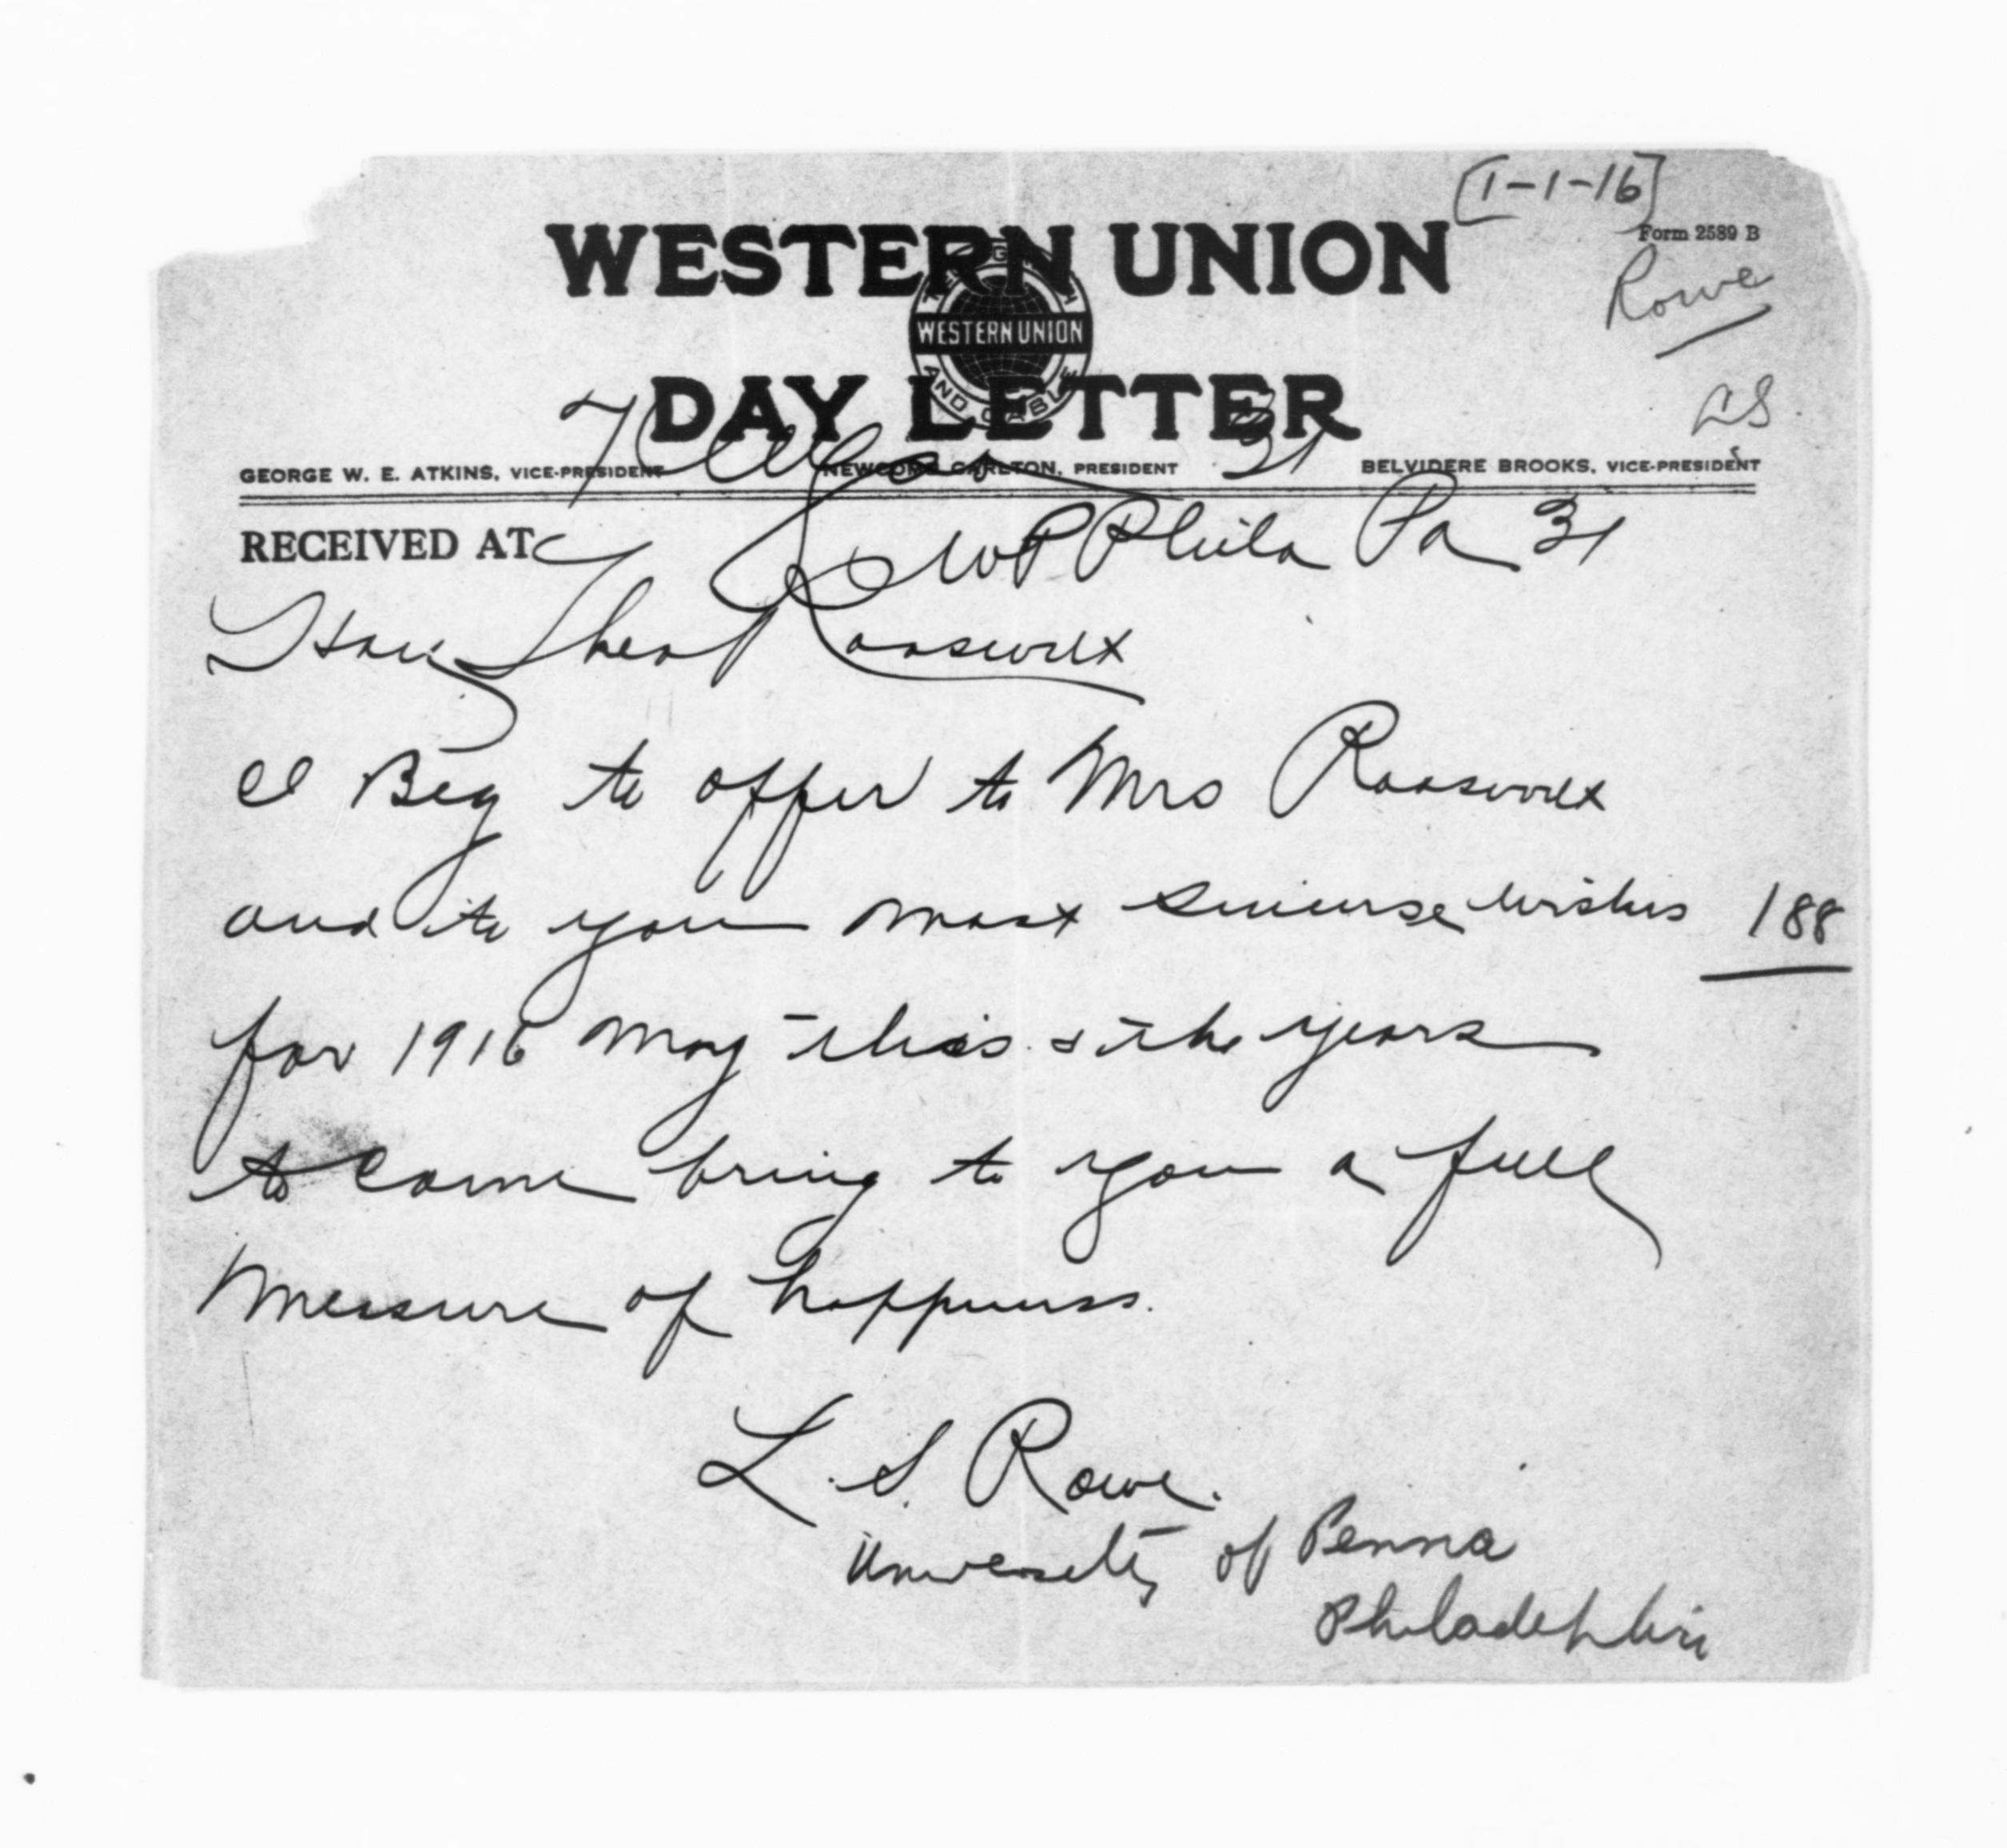 [1-1-16]
WESTERN UNION
Form 2589 B
Rowe
TELEGRAPH AND CABLE
WESTERN UNION
DAY LETTER
LS
31
GEORGE W. E. ATKINS, VICE-PRESIDENT NEWCOMB CARLTON, PRESIDENT BELVIDERE BROOKS, VICE-PRESIDENT
RECEIVED AT
Phila Pa 31
Hon Theo Roosevelt
I Beg to offer to Mrs Roosevelt
and to you most sincerse wishes 188
for 1916 may this & the years
to come bring to you a full
measure of happiness.
L. S. Rowe.
University of Penna
Philadelphia